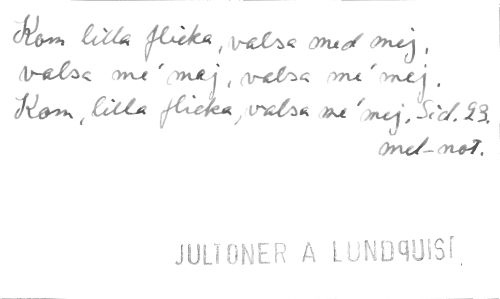 Kom lilla flicka, valsa med mej,
valsa me' maj, valsa me' mej.
Kom, lilla flicka, valsa me' mej. Sid. 23.
mel-not.
JULTONER A LUNDQUIST.